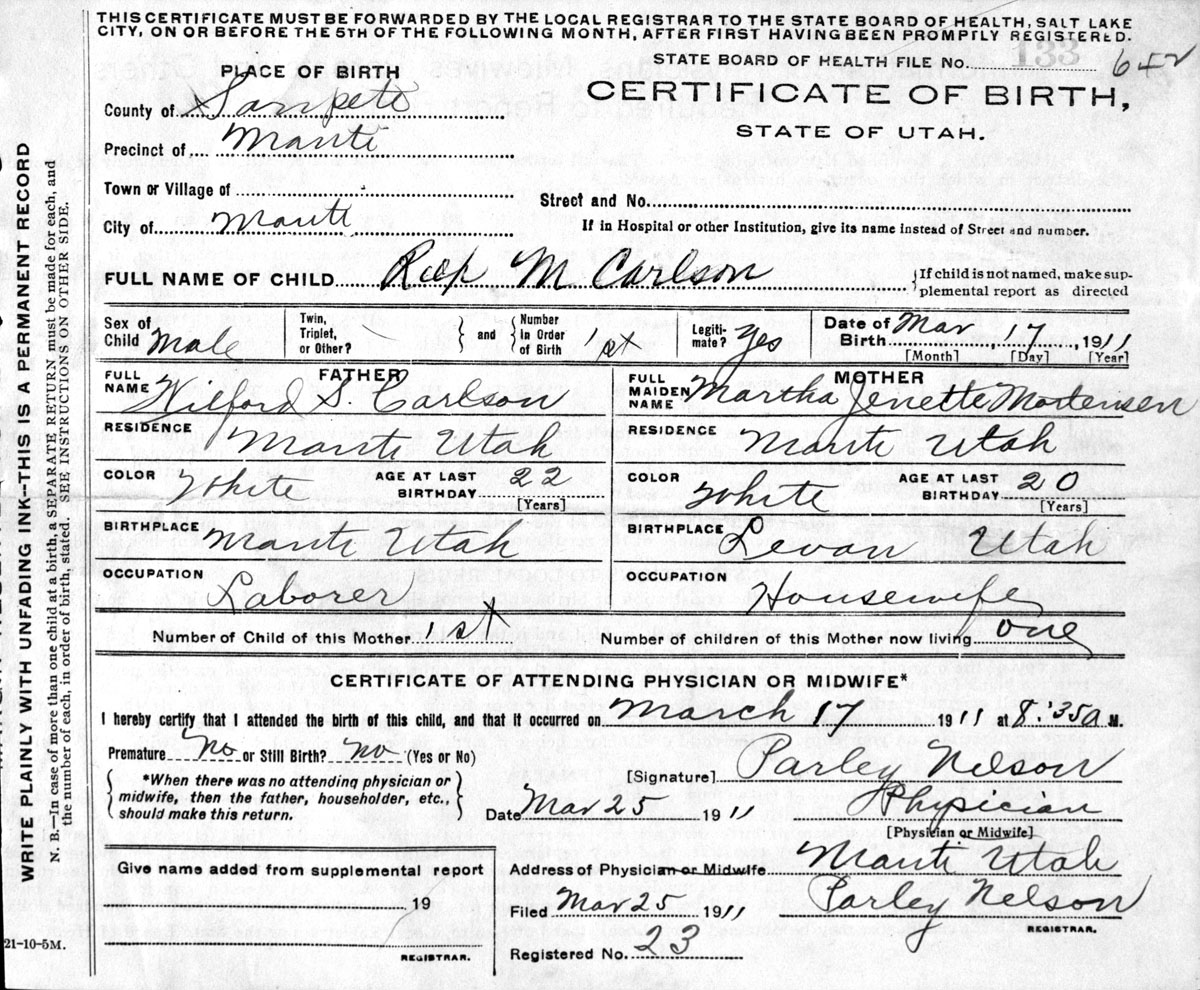 THIS CERTIFICATE MUST BE FORWARDED BY THE LOCAL REGISTRAR TO THE STATE BOARD OF HEALTH, SALT LAKE
CITY, ON OR BEFORE THE 5TH OF THE FOLLOWING MONTH, AFTER FIRST HAVING BEEN PROMPTLY REGISTERED.
STATE BOARD OF HEALTH FILE No. 133 642
PLACE OF BIRTH
CERTIFICATE OF BIRTH,
STATE OF UTAH.
County of Sanpete
Precinct of Manti
Town or Village of
Street and No.
City of Manti
If in Hospital or other Institution, give its name instead of Street and number.
FULL NAME OF CHILD M Carlson
If child is not named, make sup-
plemental report as directed
Sex of Child Male
Twin, Triplet, or Other?
and Number In Order of Birth 1st
Legiti-mate? Yes
Date of Birth Mar 17, 1911
[Month] [Day] [Year]
FATHER
FULL NAME Wilford S. Carlson
RESIDENCE Manti Utah
COLOR White AGE AT LAST BIRTHDAY 22
[Years]
BIRTHPLACE Manti Utah
OCCUPATION Laborer
MOTHER
FULL MAIDEN NAME Martha Jenette Mortensen
RESIDENCE Manti Utah
COLOR White AGE AT LAST BIRTHDAY 20
[Years]
BIRTHPLACE Levan Utah
OCCUPATION Housewife
Number of Child of this Mother 1st Number of children of this Mother now living one
CERTIFICATE OF ATTENDING PHYSICIAN OR MIDWIFE*
I hereby certify that I attended the birth of this child, and that it occurred on March 17 1911 at 8:35 a M.
Premature No or Still Birth? No (Yes or No)
*When there was no attending physician or
midwife, then the father, householder, etc.,
should make this return.
[Signature] Parley Nelson
Date Mar 25 1911 Physician
[Physician or Midwife]
Give name added from supplemental report
19
REGISTRAR.
Address of Physician or Midwife Manti Utah
Filed Mar 25 1911 Parley Nelson
REGISTRAR.
Registered No. 23
21-10-5M.
WRITE PLAINLY WITH UNFADING INK--THIS IS A PERMANENT RECORD
N. B.—In case of more than one child at a birth, a SEPARATE RETURN must be made for each, and
the number of each, in order of birth, stated. SEE INSTRUCTIONS ON OTHER SIDE.